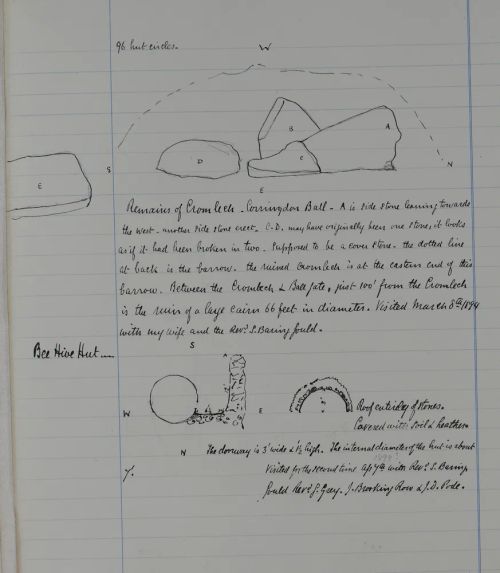 96 hut circles.
W
B
A
C
D
E
S
N
E
Remains of Cromlech - Corringdon Ball - A is side stone leaning towards
the west - another side stone erect. C.D. may have originally been one stone, it looks
as if it had been broken in two. Supposed to be a cover stone - the dotted line
at back is the barrow. the ruined Cromlech is at the eastern end of this
barrow. Between the Cromlech & Ball gate, just 100' from the Cromlech
is the ruin of a large cairn 66 feet in diameter. Visited March 8th 1894
with my wife and the Revd. S. Baring Gould.
Bee Hive Hut
S
W
E
N
Roof entirely of stones.
Covered with soil & heather
The doorway is 3' wide & 1½ high. The internal diameter of the hut is about
7'.
Visited for the second time Apl 7th with Revd. S. Baring
Gould Revd. G. Grey. J. Brooking Rowe & J.D. Pode.